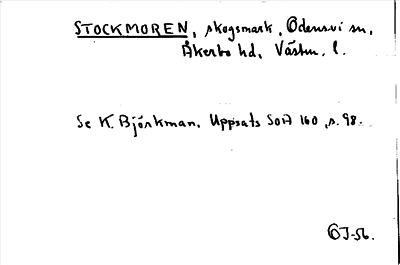 STOCKMOREN, skogsmark, Odensvi sn,
Åkerbo hd, Västm. l.
Se K. Björkman, Uppsats SOA 160, s. 98.
ÖJ-56.